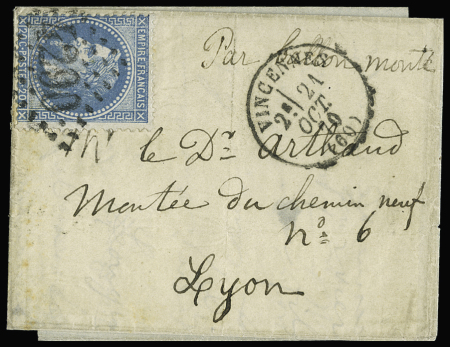 EMPIRE FRANÇAIS
20 C·POSTES·20 C
Par ballon monté
VINCENNES
2e
21
OCT.
70
(60)
Mr le Dr Arthaud
Montée du chemin neuf
no 6
Lyon